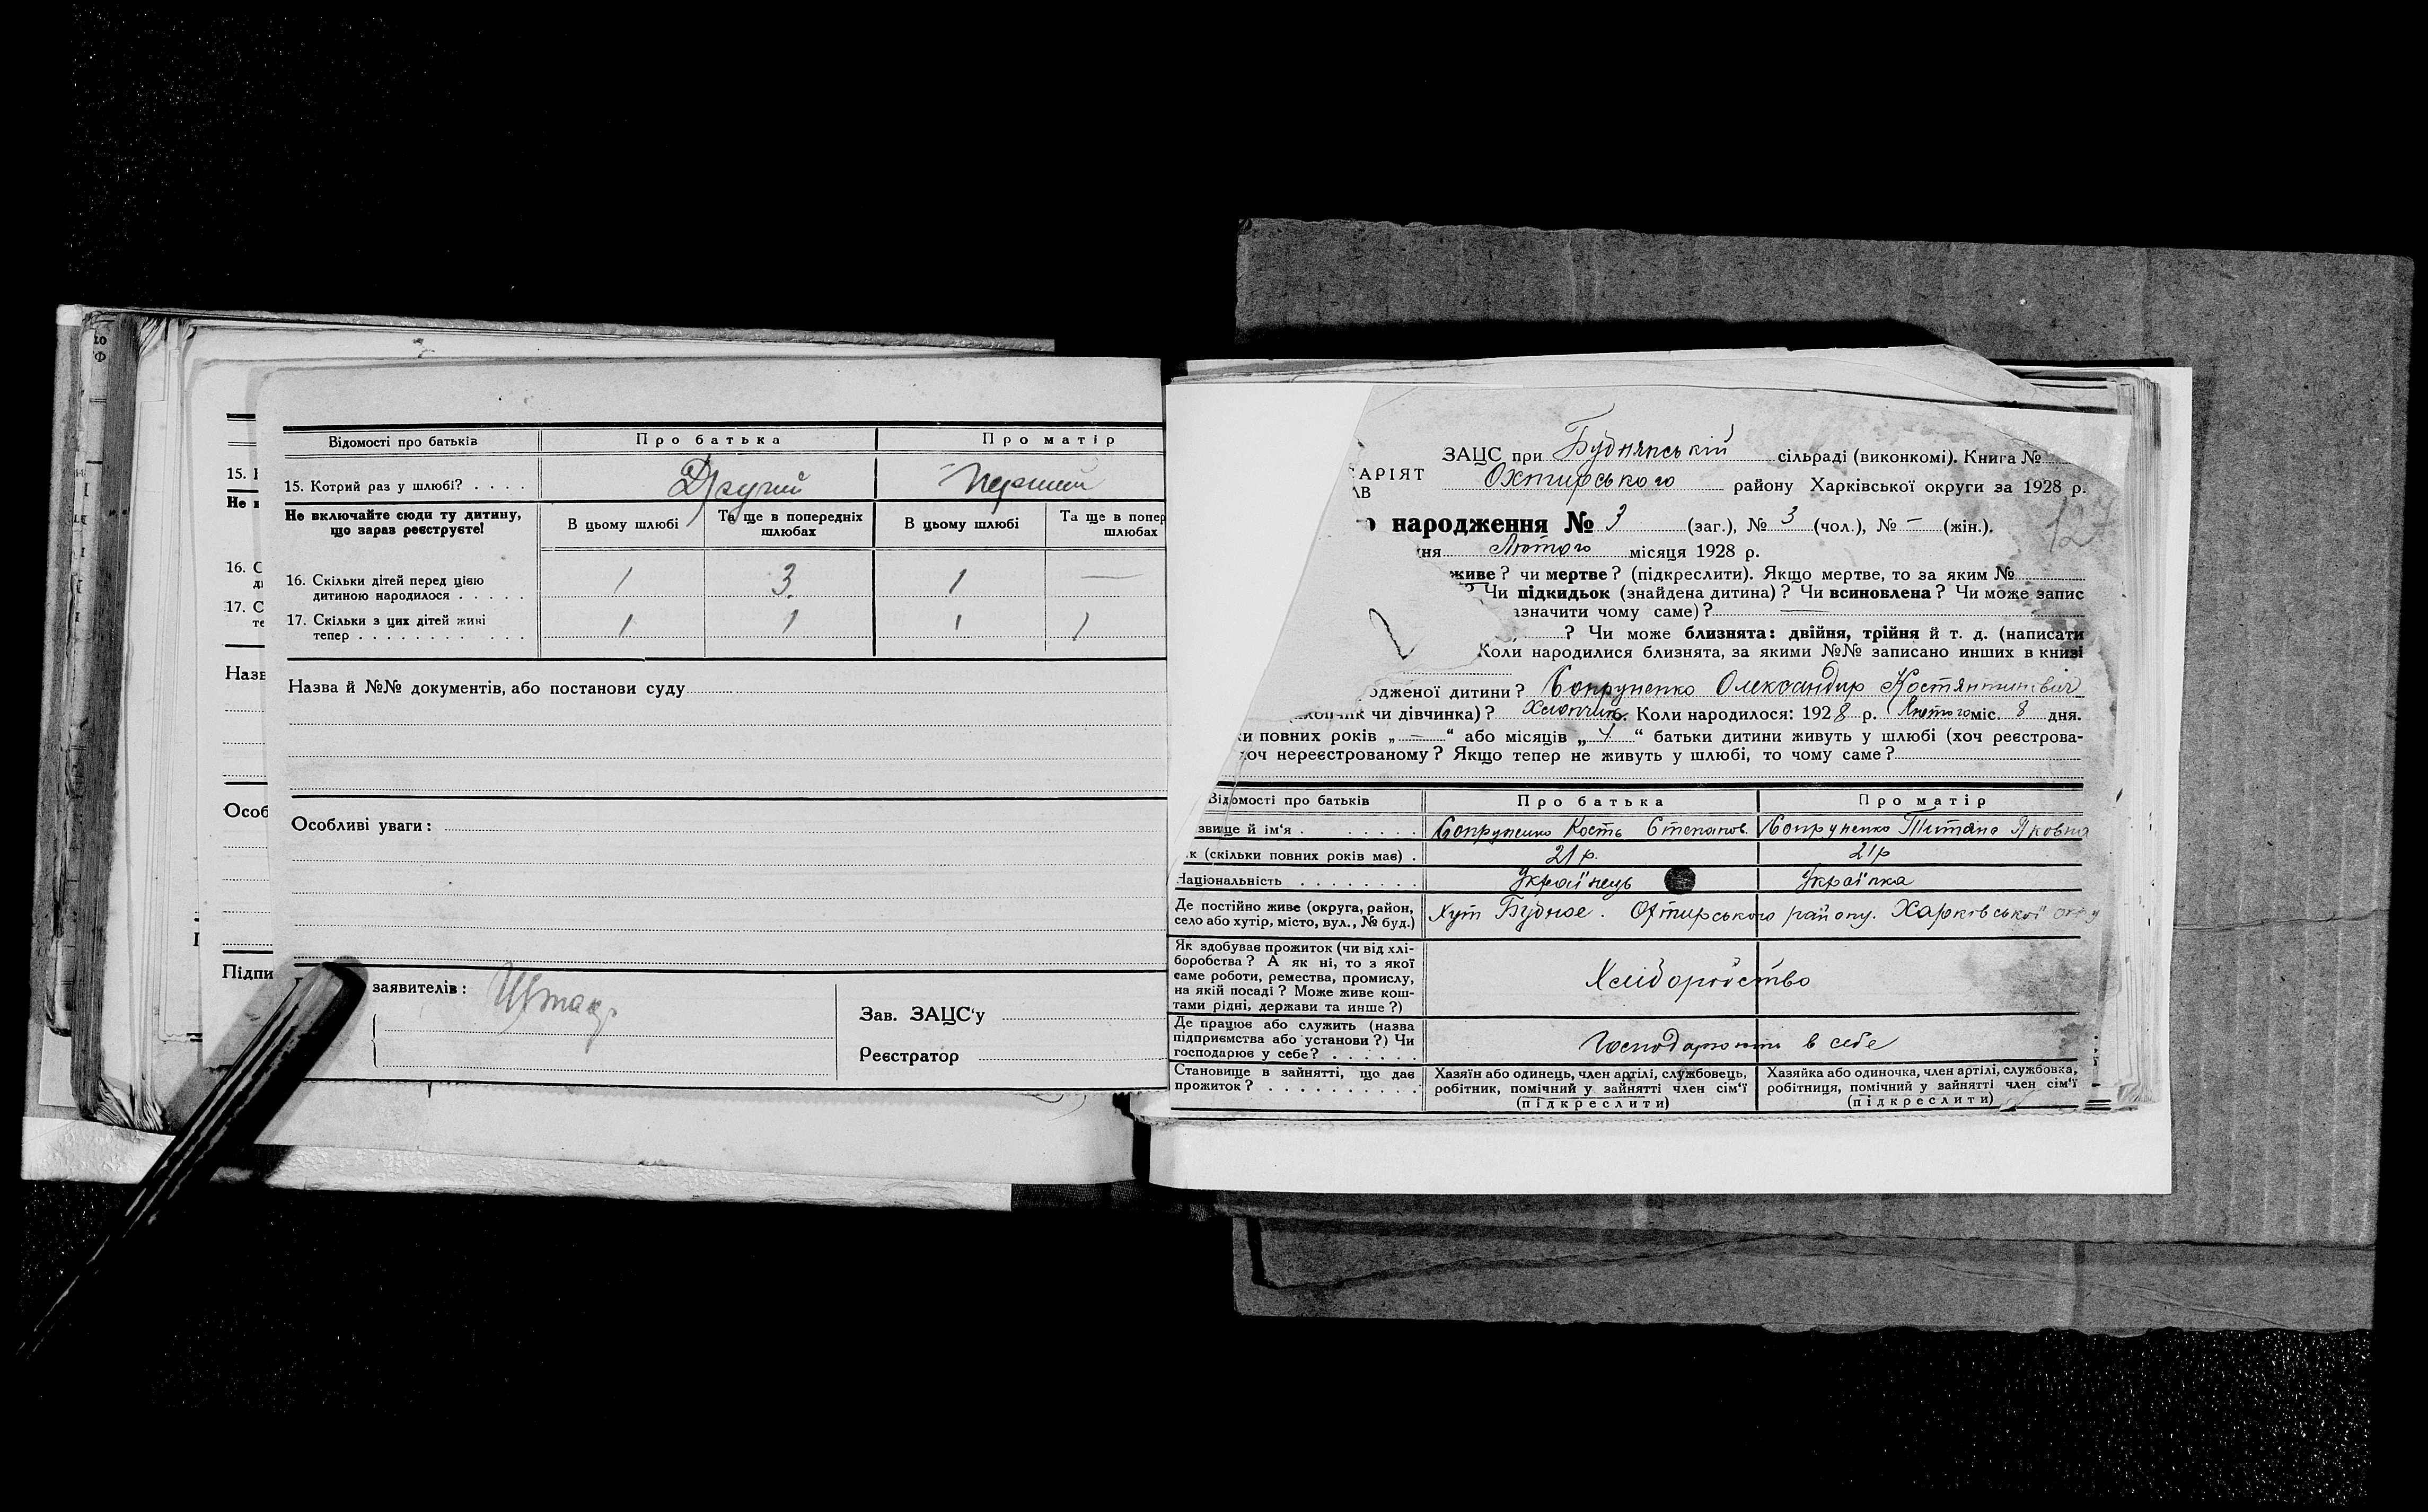 Відомості про батьків Про батька Про матір
15. Котрий раз у шлюбі? . . . . Другий Перший
Не включайте сюди ту дитину, що зараз реєструєте!
В цьому шлюбі
Та ще в попередніх шлюбах
В цьому шлюбі
Та ще в попер
шлюбах
16. Скільки дітей перед цією
дитиною народилося . . . . . 1 3 1 —
17. Скільки з цих дітей живі
тепер . . . . . . . . . . . 1 1 1 1
Назва й №№ документів, або постанови суду
Особливі уваги:
заявителів:
Зав. ЗАЦС'у
Реєстратор
15.
Не
16. С
17. С
Назв
Особ
Підпи
ЗАЦС при Буднянській сільраді (виконкомі). Книга №
АРІЯТ Охтирського району Харківської округи за 1928 р.
127
народження № 3 (заг.), № 3 (чол.), № – (жін.).
ня Лютого місяця 1928 р.
живе? чи мертве? (підкреслити). Якщо мертве, то за яким №
? Чи підкидьок (знайдена дитина)? Чи всиновлена? Чи може запис
азначити чому саме)? —
? Чи може близнята: двійня, трійня й т. д. (написати
Коли народилися близнята, за якими №№ записано инших в книзі
одженої дитини? Сопруненко Олександир Костянтинович
чик чи дівчинка)? Хлопчик. Коли народилося: 1928 р. Лютого міс. 8 дня.
и повних років „ — “ або місяців „ 4 “ батьки дитини живуть у шлюбі (хоч реєстрова-
хоч нереєстрованому? Якщо тепер не живуть у шлюбі, то чому саме?
Відомості про батьків Про батька Про матір
звище й ім'я . . . . . . Сопруненко Кость Степанов. Сопруненко Титяна Яковна
к (скільки повних років має) . 21 р. 21 р
Національність . . . . . . . . Українець Українка
Де постійно живе (округа, район,
село або хутір, місто, вул., № буд.) Хут Будное. Охтирського району. Харковської окру
Як здобуває прожиток (чи від хлі-
боробства? А як ні, то з якої
саме роботи, ремества, промислу,
на якій посаді? Може живе кош-
тами рідні, держави та инше?) Хліборобство
Де працює або служить (назва
підприємства або установи?) Чи
господарює у себе? . . . . . . Господарюють в себе
Становище в зайнятті, що дає
прожиток? . . . . . . . . . .
Хазяїн або одинець, член артілі, службовець,
робітник, помічний у зайнятті член сім'ї
(підкреслити)
Хазяйка або одиночка, член артілі, службовка,
робітниця, помічний у зайнятті член сім'ї
(підкреслити)